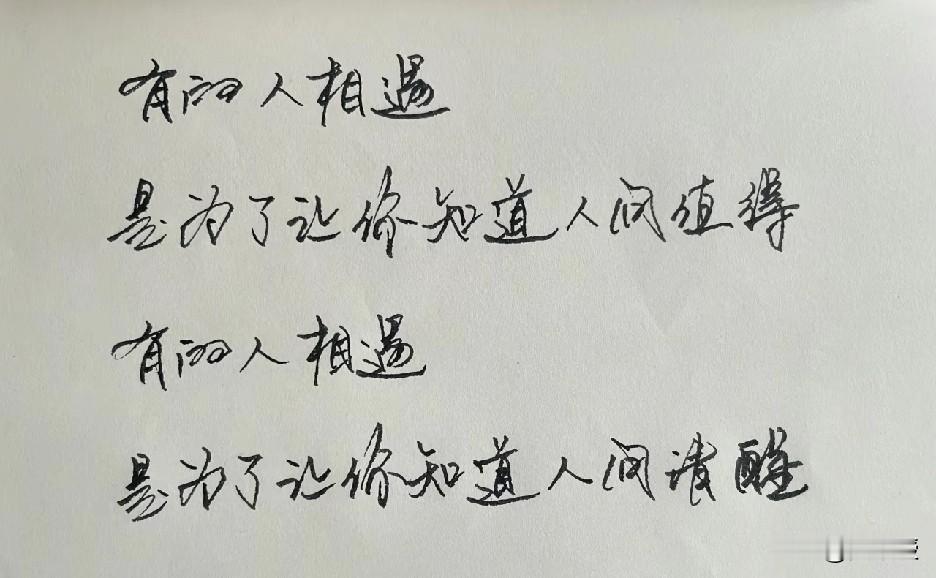 有的人相遇
是为了让你知道人间值得
有的人相遇
是为了让你知道人间清醒